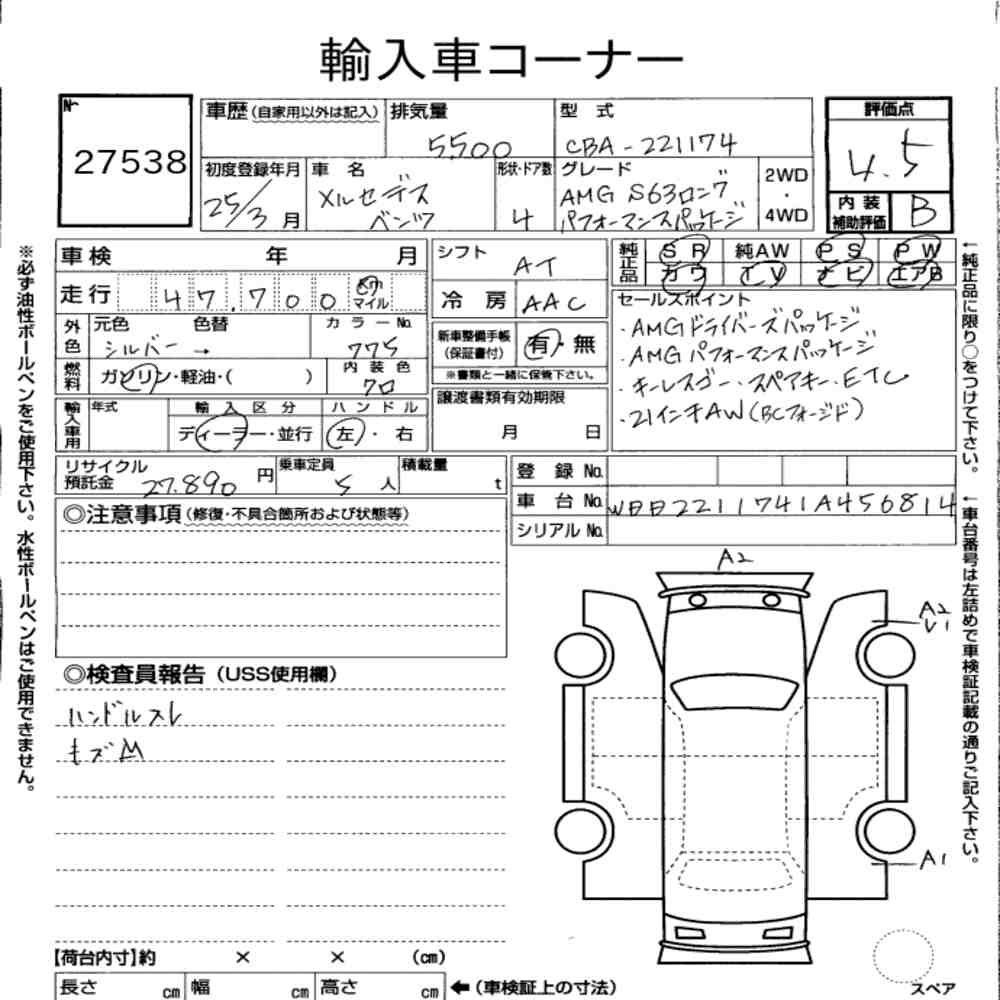 輸入車コーナー
№
27538
車歴(自家用以外は記入) 排気量 型式 評価点
5500 CBA-221174 4.5
初度登録年月 車名 形状・ドア数 グレード 2WD・4WD
25/3月 メルセデスベンツ 4 AMG S63ロング パフォーマンスパッケージ
内装補助評価 B
車検 年 月 シフト AT
純正品 SR 純AW PS PW
カワ TV ナビ エアB
走行 47,700 Km マイル 冷房 AAC
セールスポイント
・AMGドライバーズパッケージ
・AMGパフォーマンスパッケージ
・キーレスゴー・スペアキー・ETC
・21インチAW(BCフォージド)
外色 元色 色替 カラーNo.
シルバー → 775
新車整備手帳(保証書付) 有・無
※書類と一緒に保管下さい。
燃料 ガソリン・軽油・( ) 内装色 70
譲渡書類有効期限
月 日
輸入車用 年式 輸入区分 ハンドル
ディーラー・並行 左・右
リサイクル預託金 27.890円 乗車定員 5人 積載量 t
登録No.
車台No. WDD2211741A456814
シリアルNo.
◎注意事項(修復・不具合箇所および状態等)
◎検査員報告(USS使用欄)
ハンドルスレ
キズ凹
A2
A2
U1
A1
スペア
【荷台内寸】約 × × (cm)
長さ cm 幅 cm 高さ cm ←(車検証上の寸法)
※必ず油性ボールペンをご使用下さい。水性ボールペンはご使用できません。
←純正品に限り○をつけて下さい。
←車台番号は左詰めで車検証記載の通りご記入下さい。